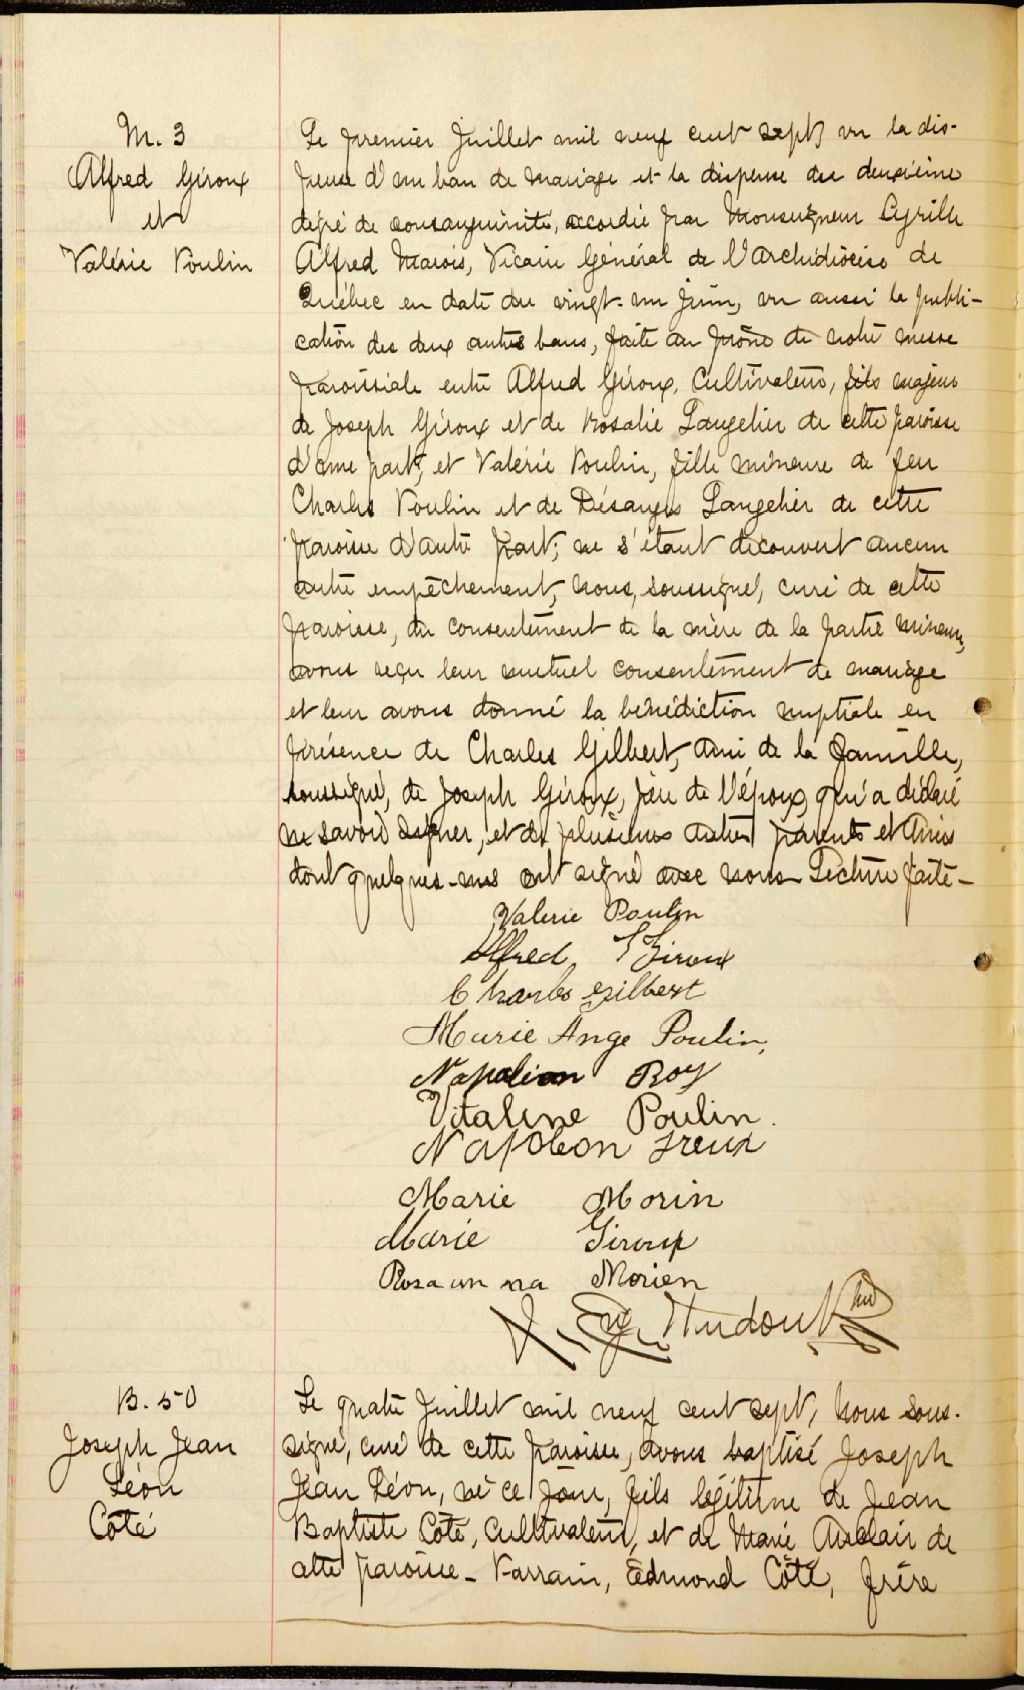 M. 3
Alfred Giroux
et
Valérie Poulin
Le premier Juillet mil neuf cent sept, vu la dis-
pense d'un ban de mariage et la dispense du deuxième
degré de consanguinité, accordée par Monseigneur Cyrille
Alfred Marois, Vicaire Général de l'Archidiocèse de
Québec en date du vingt-un juin, vu aussi la publi-
cation des deux autres bans, faite au prône de notre messe
paroissiale entre Alfred Giroux, Cultivateur, fils majeur
de Joseph Giroux et de Rosalie Langelier de cette paroisse
d'une part, et Valérie Poulin, fille mineure de feu
Charles Poulin et de Désanges Langelier de cette
paroisse d'autre part; ne s'étant découvert aucun
autre empêchement, nous, soussigné, curé de cette
paroisse, du consentement de la mère de la partie mineure,
avons reçu leur mutuel consentement de mariage
et leur avons donné la bénédiction nuptiale en
présence de Charles Gilbert, ami de la famille,
soussigné, de Joseph Giroux, père de l'époux, qui a déclaré
ne savoir signer, et de plusieurs autres parents et amis
dont quelques-uns ont signé avec nous Lecture faite-
Valerie Poulin
Alfred Giroux
Charles Gilbert
Marie Ange Poulin,
Napoleon Roy
Vitaline Poulin.
Napoleon
Marie Morin
Marie Giroux
Rosaanna Morien
B. 50
Joseph Jean
Léon
Côté
Le quatre Juillet mil neuf cent sept, nous sous-
signé, curé de cette paroisse, avons baptisé Joseph
Jean Léon, né ce jour, fils légitime de Jean
Baptiste Côté, Cultivateur, et de Marie Auclair de
cette paroisse- Parrain, Edmond Côté, frère